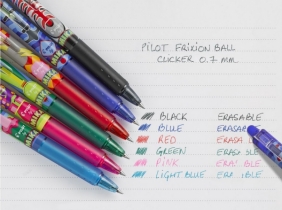 PILOT FRIXION BALL
CLICKER 0.7 mm
BLACK ERASABLE
BLUE ERASABLE
RED ERASA L
GREEN ERASA BLE
PINK ERAS BLE
LIGHT BLUE ERA BLE